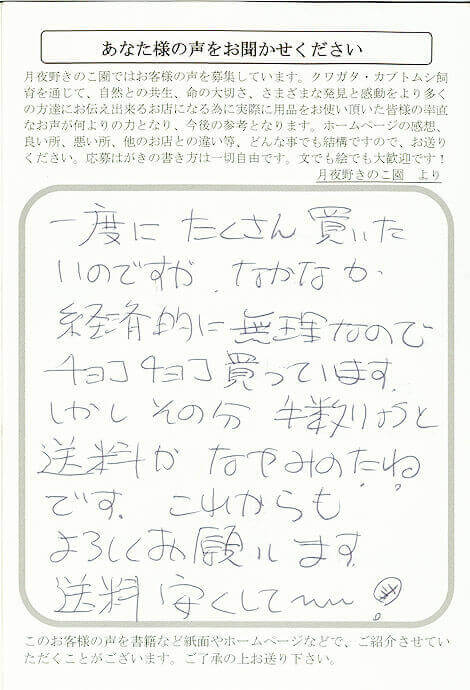 あなた様の声をお聞かせください
月夜野きのこ園ではお客様の声を募集しています。クワガタ・カブトムシ飼
育を通じて、自然との共生、命の大切さ、さまざまな発見と感動をより多く
の方達にお伝え出来るお店になる為に実際に用品をお使い頂いた皆様の率直
なお声が何よりの力となり、今後の参考となります。ホームページの感想、
良い所、悪い所、他のお店との違い等、どんな事でも結構ですので、お送り
ください。応募はがきの書き方は一切自由です。文でも絵でも大歓迎です！
月夜野きのこ園　より
一度に たくさん 買いた
いのですが、なかなか
経済的に無理なので
チョコチョコ買っています。
しかし その分 手数りょうと
送料が なやみのたね
です。これからも
よろしくお願いします。
送料 安くして〜〜!
このお客様の声を書籍など紙面やホームページなどで、ご紹介させてい
ただくことがございます。ご了承の上お送り下さい。